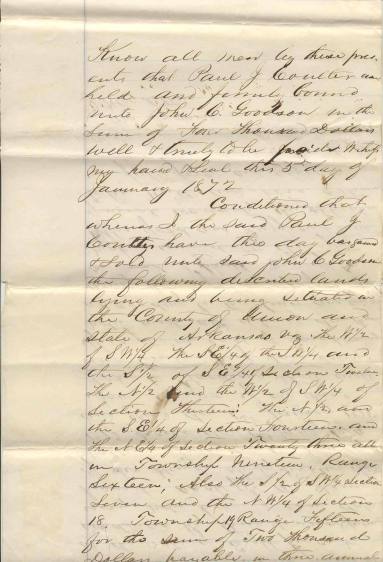 Know all men by these pres-
ents that Paul J Coulter am
held and firmly bound
unto John C. Goodson in the
Sum of Four Thousand Dollars
well & truely to be paid Witness
my hand & Seal this 5 day of
January 1872
Conditioned that
whereas I the said Paul J
Coulter have this day bargained
& Sold unto said John C Goodson
the following described lands
lying and being situated in
the County of Union and
State of Arkansas viz The W1/2
of SW1/4, The SE1/4 of the SW1/4 and
the S1/2 of SE1/4 Section
The N1/2 and the W1/2 of SW1/4 of
Section Thirteen; The N1/2, and
the SE1/4 of Section Fourteen, and
The NE1/4 of Section Twenty three all
in Township Nineteen, Range
Sixteen; Also The S1/2 of SW1/4 Section
Seven and the NW1/4 of Section
18, Township 19 Range Fifteen
for the sum of Two Thousand
Dollars payable in three annual